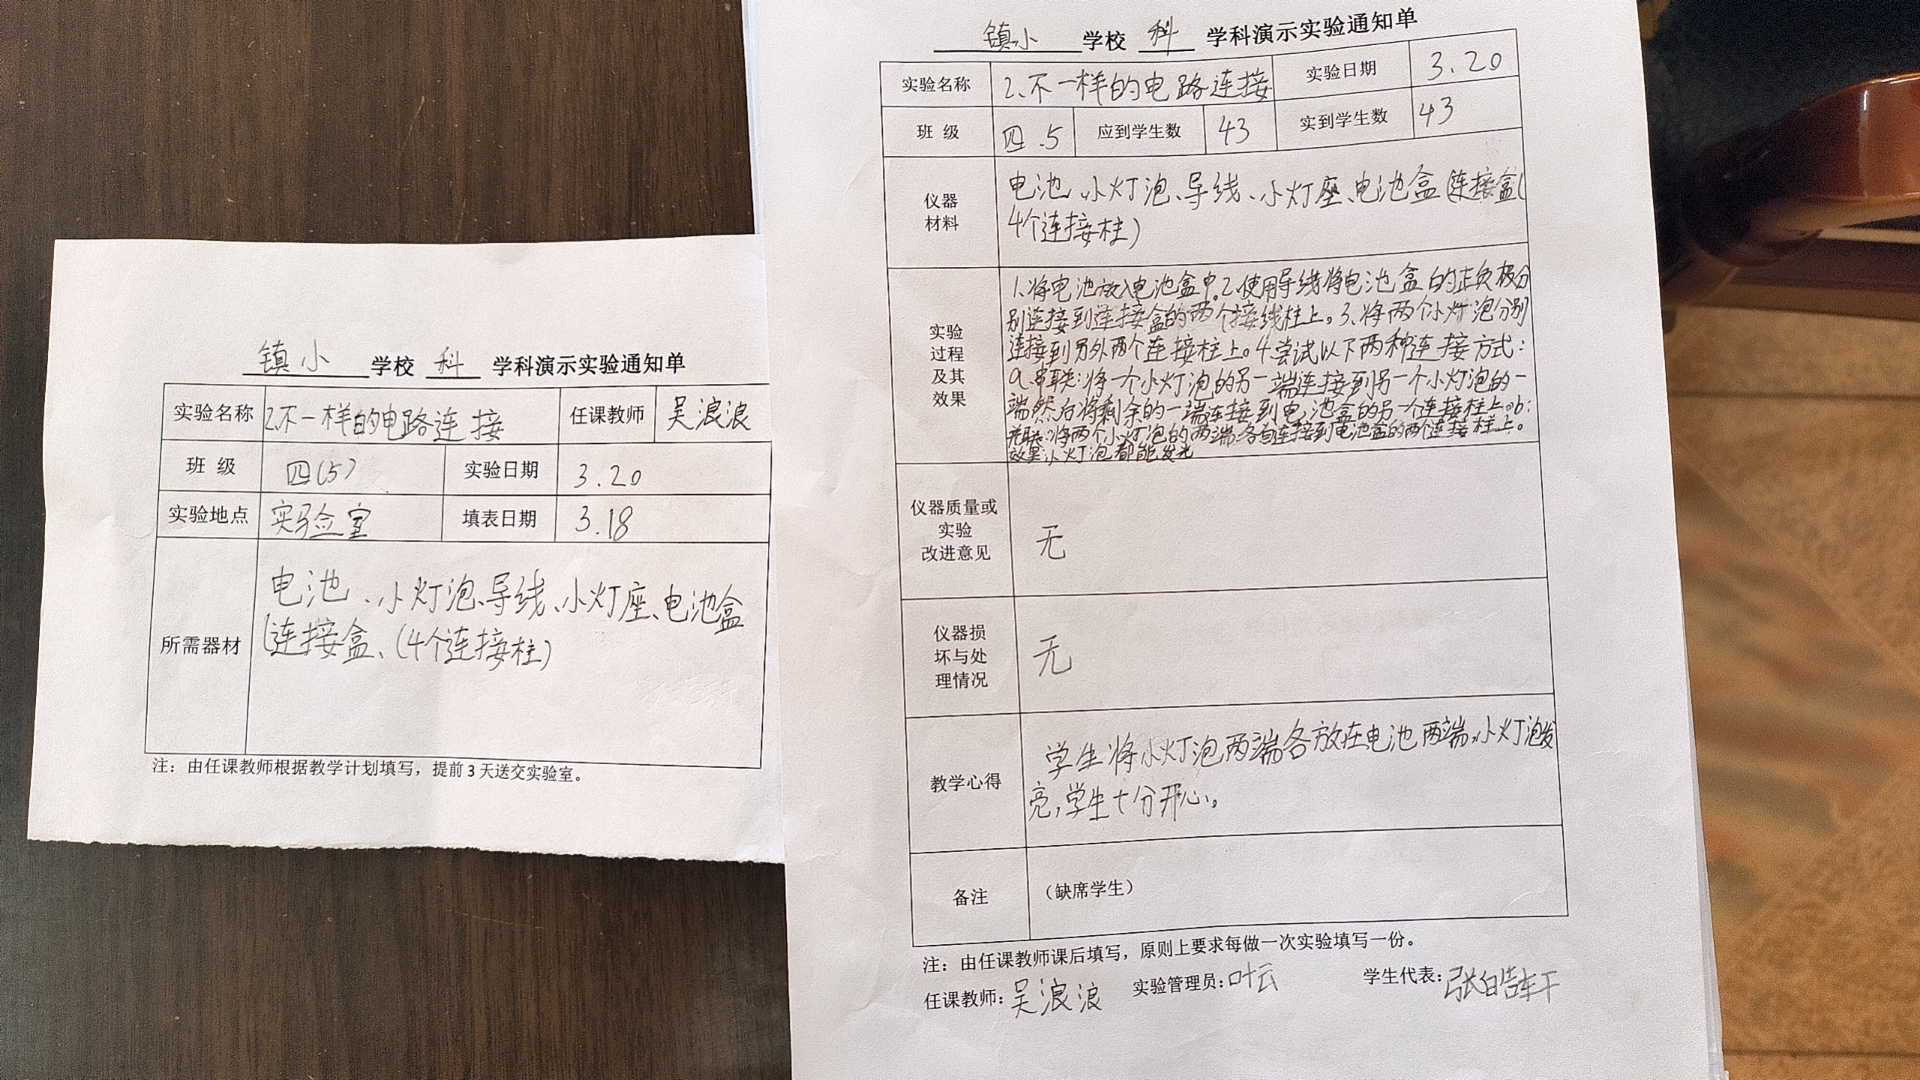 镇小 学校 科 学科演示实验通知单
实验名称 2.不一样的电路连接 任课教师 吴浪浪
班 级 四(5) 实验日期 3.20
实验地点 实验室 填表日期 3.18
所需器材
电池、小灯泡、导线、小灯座、电池盒
连接盒、(4个连接柱)
注：由任课教师根据教学计划填写，提前3天送交实验室。
镇小 学校 科 学科演示实验通知单
实验名称 2.不一样的电路连接 实验日期 3.20
班 级 四.5 应到学生数 43 实到学生数 43
仪器
材料
电池、小灯泡、导线、小灯座、电池盒、连接盒(
4个连接柱)
实验
过程
及其
效果
1.将电池放入电池盒中。2.使用导线将电池盒的正负极分
别连接到连接盒的两个接线柱上。3、将两个小灯泡分别
连接到另外两个连接柱上。4.尝试以下两种连接方式：
a.串联:将一个小灯泡的另一端连接到另一个小灯泡的一
端然后将剩余的一端连接到电池盒的另一个连接柱上。b:
并联:将两个小灯泡的两端各自连接到电池盒的两个连接柱上。
效果:小灯泡都能发光
仪器质量或
实验
改进意见
无
仪器损
坏与处
理情况
无
教学心得
学生将小灯泡两端各放在电池两端,小灯泡发
亮,学生十分开心。
备注 （缺席学生）
注：由任课教师课后填写，原则上要求每做一次实验填写一份。
任课教师：吴浪浪 实验管理员：叶云 学生代表：张皓轩